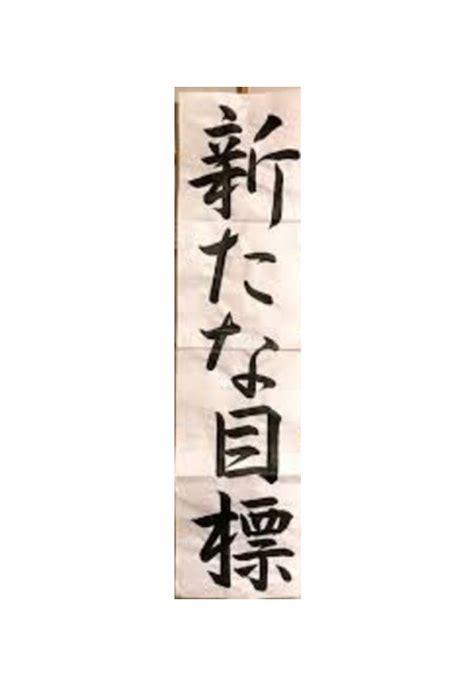 新たな目標